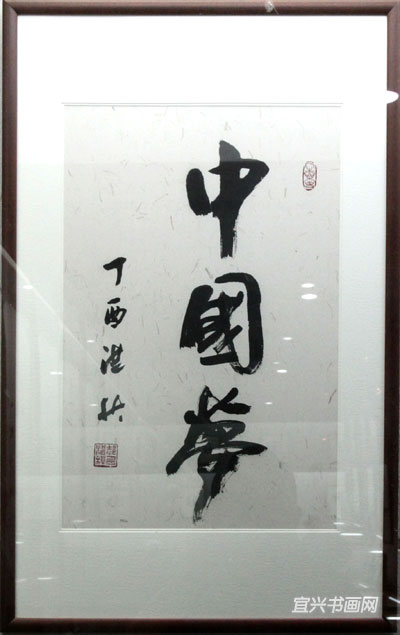 中國夢
丁酉洪
宜兴书画网